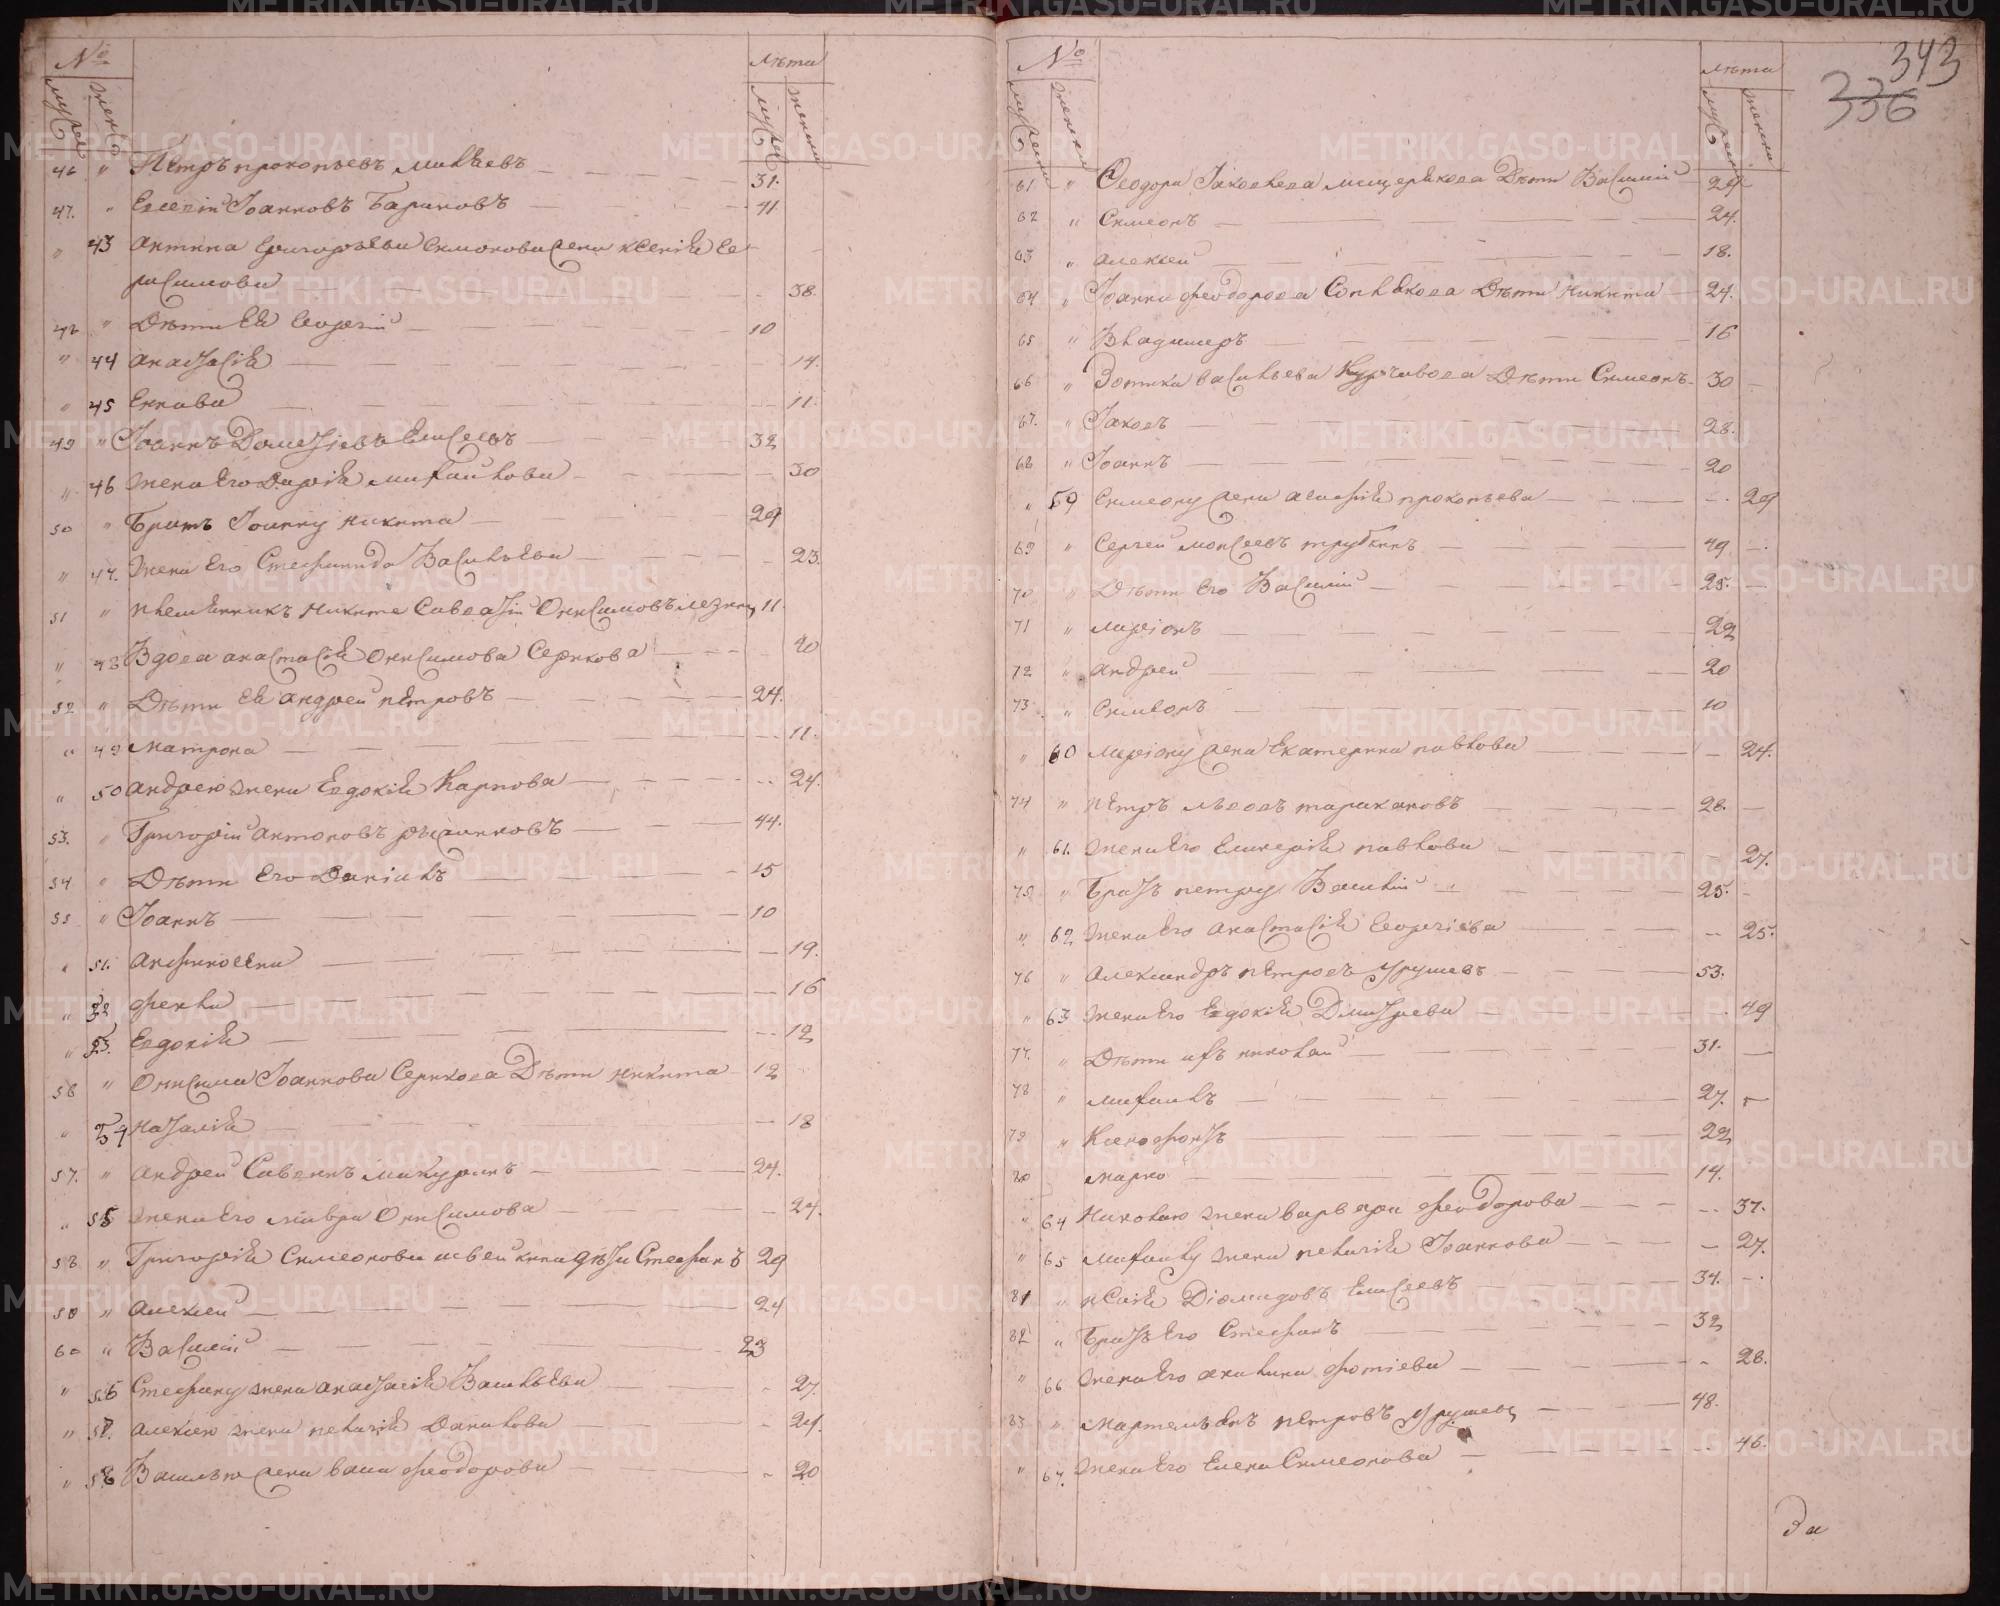 №
Лѣта
мужеск
женск
мужеск
женски
46 " Петръ Прокопьевъ Минѣевъ 31.
47. " Евсевій Іоанновъ Бариновъ 41
" 43 Антипа Григорьева Симонова жена Ксенія Ге-
расимова 38.
48 " Дѣти Ея Георгій 10
" 44 Анастасія 14.
" 45 Еннафа 11.
49 " Іоаннъ Дометіевъ Елисеевъ 32
" 46 жена Его Дарія Михайлова 30
50 " Братъ Іоанну Никита 29
" 47. Жена Его Стефанида Васильева 23.
51 " племянникъ Никите Савватій Онисимовъ 11.
" 48 Вдова Анастасія Онисимова Серкова 40
52 " Дѣти Ея Андрей Петровъ 24.
" 49 Матрона 11.
" 50 Андрею жена Евдокія Карпова 24.
53. " Григорій Антоновъ 44.
54 " Дѣти Его Даніилъ 15
55 " Іоаннъ 10
" 51. Анфиногена 19.
" 52 Фекла 16
" 53. Евдокія 12
56 " Онисима Іоаннова Серкова Дѣти Никита 12
" 54 Наталія 18
57. " Андрей Савинъ Макуринъ 24.
" 55 жена Его Мавра Онисимова 24.
58 " Григорія Симеонова Швейкина дѣти Стефанъ 29
59 " Алексей 24
60 " Василій 23
" 56 Стефану жена Анастасія Васильева 27.
" 57. Алексею жена Пелагія Данилова 24.
" 58 Василью жена Васа Феодорова 20
343
336
№
Лѣта
мужески
женски
мужески
женски
61 " Феодора Іаковлева Мещерякова Дѣти Василій 29
62 " Симеонъ 24.
63 " Алексей 18.
64 " Іоанна Феодорова Дѣти Никита 24.
65 " Владимеръ 16
66 " Зотика Васильева Дѣти Симеонъ 30
67. " Іаковъ 28.
68 " Іоаннъ 20
" 59 Симеону жена Агафія Прокопьева 29
69 " Сергей Моисеевъ Трубкинъ 49
70 " Дѣти Его Василій 25.
71 " Маріонъ 22
72 " Андрей 20
73 " Симеонъ 10
" 60 Маріону жена Екатерина Павлова 24.
74 " Петръ Львовъ Таракановъ 28.
" 61. жена Его Гликерія Павлова 27.
75 " Братъ Петру Василій 25.
" 62 жена Его Анастасія Георгіева 25.
76 " Александръ Петровъ Урушевъ 53.
" 63 жена Его Евдокія Димитрева 49
77. " Дѣти ихъ Николай 31.
78 " Михаилъ 27.
79 " Ксенофонтъ 22
80 Марко 14.
" 64 Николаю жена Варвара Феодорова 37.
" 65 Михаилу жена Пелагія Іоаннова 27.
81 " Исаія Діомидовъ Елисеевъ 34.
82 " Братъ Его Стефанъ 32
" 66 жена Его Акилина Фотіева 28.
83 " Мартемьянъ Петровъ Урушевъ 48.
" 67. жена Его Елена Симеонова 46.
За